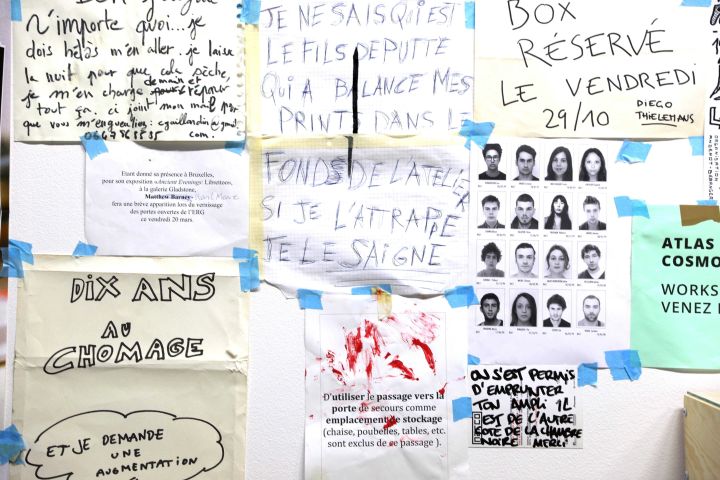 n'importe quoi...je
dois hélas m'en aller. je laisse
la nuit pour que cela sèche,
je m'en charge demain et
tout ça. ci joint mon mail par
que vous m'engueuliez:
com.
JE NE SAIS QUI EST
LE FILS DE PUTTE
QUI A BALANCE MES
PRINTS DANS LE
FONDS DE L'ATELIER
SI JE L'ATTRAPPE
JE LE SAIGNE
BOX
RÉSERVÉ
LE VENDREDI
29/10
DIEGO
THIELEMANS
Etant donné sa présence à Bruxelles,
pour son exposition «Ancient Evenings: Libretto»,
à la galerie Gladstone,
Matthew Barney
fera une brève apparition lors du vernissage
des portes ouvertes de l'ERG
ce vendredi 20 mars.
DIX ANS
AU
CHOMAGE
ET JE DEMANDE
UNE
AUGMENTATION
D'utiliser le passage vers la
porte de secours comme
emplacement de stockage
(chaise, poubelles, tables, etc.
sont exclus de ce passage ).
ON S'EST PERMIS
D'EMPRUNTER
TON AMPLI IL
EST DE L'AUTRE
COTÉ DE LA CHAMBRE
NOIRE MERCI
ATLAS
COSMO
WORKS
VENEZ